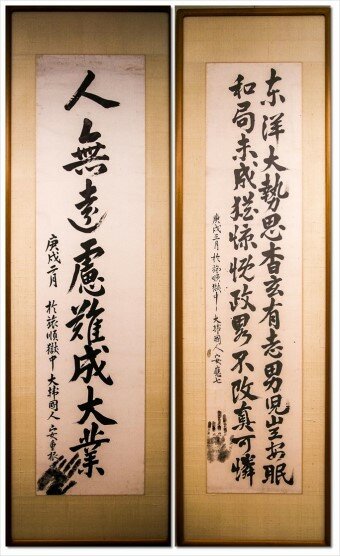 東洋大勢思杳玄有志男兒豈安眠
和局未成猶慷慨政畧不改真可憐
庚戌三月 於旅順獄中 大韓國人 安應七
人無遠慮難成大業
庚戌二月 於旅順獄中 大韓國人 安重根